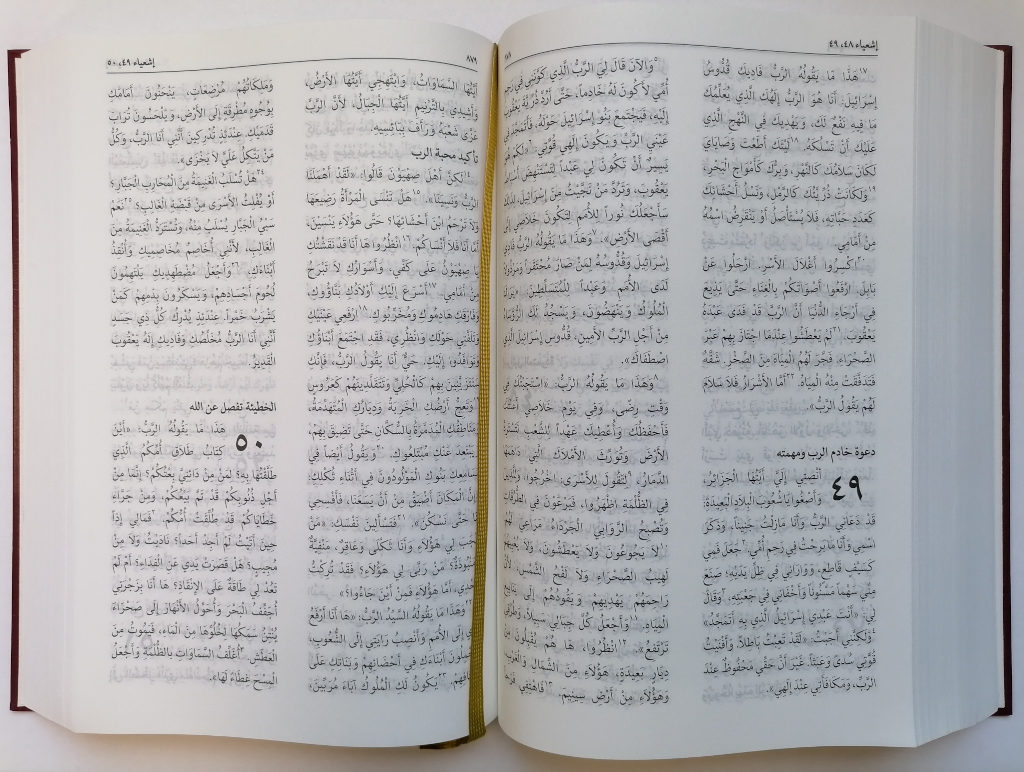 إشعياء ٤٨، ٤٩
١٧هَذَا مَا يَقُولُهُ الرَّبُّ فَادِيكَ قُدُّوسُ
إِسْرَائِيلَ: أَنَا هُوَ الرَّبُّ إِلَهُكَ الَّذِي يُعَلِّمُكَ
مَا فِيهِ نَفْعٌ لَكَ، وَيَهْدِيكَ فِي النَّهْجِ الَّذِي
عَلَيْكَ أَنْ تَسْلُكَهُ. ١٨لَيْتَكَ أَطَعْتَ وَصَايَايَ
لَكَانَ سَلَامُكَ كَالنَّهْرِ، وَبِرُّكَ كَأَمْوَاجِ الْبَحْرِ،
١٩وَلَكَانَتْ ذُرِّيَّتُكَ كَالرَّمْلِ، وَنَسْلُ أَحْشَائِكَ
كَعَدَدِ حَبَّاتِهِ، فَلَا يُسْتَأْصَلُ أَوْ يَنْقَرِضُ اسْمُهُ
مِنْ أَمَامِي.
٢٠اكْسِرُوا أَغْلَالَ الأَسْرِ. ارْحَلُوا عَنْ
بَابِلَ. ارْفَعُوا أَصْوَاتَكُمْ بِالْغِنَاءِ حَتَّى يَذِيعَ
فِي أَرْجَاءِ الدُّنْيَا أَنَّ الرَّبَّ قَدْ فَدَى عَبْدَهُ
يَعْقُوبَ. ٢١لَمْ يَعْطَشُوا عِنْدَمَا اجْتَازَ بِهِمْ عَبْرَ
الصَّحْرَاءِ، فَجَّرَ لَهُمُ الْمِيَاهَ مِنَ الصَّخْرِ. شَقَّهُ
فَتَدَفَّقَتْ مِنْهُ الْمِيَاهُ. ٢٢أَمَّا الأَشْرَارُ فَلَا سَلَامَ
لَهُمْ يَقُولُ الرَّبُّ».
دعوة خادم الرب ومهمته
٤٩ أَنْصِتِي إِلَيَّ أَيَّتُهَا الْجَزَائِرُ،
وَأَصْغُوا يَا شُعُوبَ الْبِلَادِ الْبَعِيدَةِ:
قَدْ دَعَانِي الرَّبُّ وَأَنَا مَازِلْتُ جَنِيناً، وَذَكَرَ
اسْمِي وَأَنَا مَا بَرِحْتُ فِي رَحِمِ أُمِّي. ٢جَعَلَ فَمِي
كَسَيْفٍ قَاطِعٍ، وَوَارَانِي فِي ظِلِّ يَدَيْهِ؛ صَنَعَ
مِنِّي سَهْماً مَسْنُوناً وَأَخْفَانِي فِي جَعْبَتِهِ. ٣وَقَالَ
لِي: «أَنْتَ عَبْدِي إِسْرَائِيلُ، الَّذِي بِهِ أَتَمَجَّدُ»
٤وَلَكِنَّنِي أَجَبْتُ: «لَقَدْ تَعِبْتُ بَاطِلاً، وَأَفْنَيْتُ
قُوَّتِي سُدىً وَعَبَثاً. غَيْرَ أَنَّ حَقِّي مَحْفُوظٌ عِنْدَ
الرَّبِّ، وَمُكَافَأَتِي عِنْدَ إِلَهِي».
٥وَالآنَ قَالَ لِيَ الرَّبُّ الَّذِي كَوَّنَنِي فِي رَحِمِ
أُمِّي لأَكُونَ لَهُ خَادِماً، حَتَّى أَرُدَّ ذُرِّيَّةَ يَعْقُوبَ
إِلَيْهِ، فَيَجْتَمِعَ بَنُو إِسْرَائِيلَ حَوْلَهُ، فَأَتَمَجَّدَ فِي
عَيْنَيِ الرَّبِّ وَيَكُونَ إِلَهِي قُوَّتِي. ٦«لَكَمْ هُوَ
يَسِيرٌ أَنْ تَكُونَ لِي عَبْداً لِتَسْتَنْهِضَ أَسْبَاطَ
يَعْقُوبَ، وَتَرُدَّ مَنْ نَجَّيْتُ مِنْ إِسْرَائِيلَ، لِذَلِكَ
سَأَجْعَلُكَ نُوراً لِلأُمَمِ لِتَكُونَ خَلَاصِي إِلَى
أَقْصَى الأَرْضِ». ٧وَهَذَا مَا يَقُولُهُ الرَّبُّ فَادِي
إِسْرَائِيلَ وَقُدُّوسُهُ لِمَنْ صَارَ مُحْتَقَراً وَمَرْذُولاً
لَدَى الأُمَمِ وَعَبْداً لِلْمُتَسَلِّطِينَ: «يَرَاكَ
الْمُلُوكُ وَيَنْهَضُونَ، وَيَسْجُدُ لَكَ الرُّؤَسَاءُ
مِنْ أَجْلِ الرَّبِّ الأَمِينِ، قُدُّوسِ إِسْرَائِيلَ الَّذِي
اصْطَفَاكَ».
٨وَهَذَا مَا يَقُولُهُ الرَّبُّ: «اسْتَجَبْتُكَ فِي
وَقْتِ رِضًى، وَفِي يَوْمِ خَلَاصِي أَعَنْتُكَ
فَأَحْفَظُكَ وَأُعْطِيكَ عَهْداً لِلشَّعْبِ لِتَسْتَرِدَّ
الأَرْضَ وَتُوَرِّثَ الأَمْلَاكَ الَّتِي دَاهَمَهَا
الدَّمَارُ، ٩لِتَقُولَ لِلأَسْرَى: اخْرُجُوا، وَلِلَّذِينَ
فِي الظُّلْمَةِ اظْهَرُوا، فَيَرْعَوْنَ فِي الطُّرُقَاتِ
وَتُصْبِحُ الرَّوَابِي الْجَرْدَاءُ مَرَاعِيَ لَهُمْ.
١٠لَا يَجُوعُونَ وَلَا يَعْطَشُونَ، وَلَا يُعْيِيهِمْ
لَهِيبُ الصَّحْرَاءِ وَلَا لَفْحُ الشَّمْسِ، لأَنَّ
رَاحِمَهُمْ يَهْدِيهِمْ وَيَقُودُهُمْ إِلَى يَنَابِيعِ
الْمِيَاهِ. ١١وَأَجْعَلُ كُلَّ جِبَالِي سَبِيلاً، وَطُرُقِي
تَرْتَفِعُ. ١٢انْظُرُوا، هَا هُمْ يُقْبِلُونَ مِنْ
دِيَارٍ بَعِيدَةٍ، هَؤُلَاءِ مِنَ الشِّمَالِ وَالْغَرْبِ،
وَهَؤُلَاءِ مِنْ أَرْضِ سِينِيمَ. ١٣فَاهْتِفِي فَرَحاً
٨٧٩
إشعياء ٤٩، ٥٠
أَيَّتُهَا السَّمَاوَاتُ، وَابْتَهِجِي أَيَّتُهَا الأَرْضُ،
وَأَشِيدِي بِالتَّرْنِيمِ أَيَّتُهَا الْجِبَالُ، لأَنَّ الرَّبَّ
عَزَّى شَعْبَهُ وَرَأَفَ بِبَائِسِيهِ.
تأكيد محبة الرب
١٤لَكِنَّ أَهْلَ صِهْيَوْنَ قَالُوا: «لَقَدْ أَهْمَلَنَا
الرَّبُّ وَنَسِيَنَا». ١٥هَلْ تَنْسَى الْمَرْأَةُ رَضِيعَهَا
وَلَا تَرْحَمُ ابْنَ أَحْشَائِهَا؟ حَتَّى هَؤُلَاءِ يَنْسَيْنَ،
أَمَّا أَنَا فَلَا أَنْسَاكُمْ. ١٦انْظُرُوا هَا أَنَا قَدْ نَقَشْتُكِ
يَا صِهْيَوْنُ عَلَى كَفِّي، وَأَسْوَارُكِ لَا تَبْرَحُ
مِنْ أَمَامِي. ١٧أَسْرَعَ إِلَيْكِ أَوْلَادُكِ بَنَّاؤُوكِ،
وَفَارَقَكِ هَادِمُوكِ وَمُخَرِّبُوكِ. ١٨ارْفَعِي عَيْنَيْكِ
وَتَلَفَّتِي حَوْلَكِ وَانْظُرِي، فَقَدِ اجْتَمَعَ أَبْنَاؤُكِ
وَتَوَافَدُوا إِلَيْكِ. حَيٌّ أَنَا يَقُولُ الرَّبُّ، فَإِنَّكِ
سَتَتَزَيَّنِينَ بِهِمْ كَالْحُلِيِّ وَتَتَقَلَّدِينَهُمْ كَعَرُوسٍ
١٩وَتَعِجُّ أَرْضُكِ الْخَرِبَةُ وَدِيَارُكِ الْمُتَهَدِّمَةُ،
وَمَنَاطِقُكِ الْمُدَمَّرَةُ بِالسُّكَّانِ حَتَّى تَضِيقَ بِهِمْ،
وَيَبْتَعِدُ عَنْكِ مُبْتَلِعُوكِ. ٢٠وَيَقُولُ أَيْضاً فِي
مَسَامِعِكِ بَنُوكِ الْمَوْلُودُونَ فِي أَثْنَاءِ ثُكْلِكِ:
إِنَّ الْمَكَانَ أَضْيَقُ مِنْ أَنْ يَسَعَنَا، فَأَفْسِحِي
لَنَا حَتَّى نَسْكُنَ». ٢١فَتَسْأَلِينَ نَفْسَكِ: «مَنْ
أَنْجَبَ لِي هَؤُلَاءِ وَأَنَا ثَكْلَى وَعَاقِرٌ، مَنْفِيَّةٌ
وَمَنْبُوذَةٌ؟ مَنْ رَبَّى لِي هَؤُلَاءِ؟ فَقَدْ تُرِكْتُ
وَحْدِي، أَمَّا هَؤُلَاءِ فَمِنْ أَيْنَ جَاءُوا؟»
٢٢وَهَذَا مَا يَقُولُهُ السَّيِّدُ الرَّبُّ: «هَا أَنَا أَرْفَعُ
يَدِي إِلَى الأُمَمِ وَأَنْصِبُ رَايَتِي إِلَى الشُّعُوبِ،
فَيَحْمِلُونَ أَبْنَاءَكِ فِي أَحْضَانِهِمْ وَبَنَاتِكِ عَلَى
أَكْتَافِهِمْ. ٢٣يَكُونُ لَكِ الْمُلُوكُ آبَاءً مُرَبِّينَ،
وَمَلِكَاتُهُمْ مُرْضِعَاتٍ، يَنْحَنُونَ أَمَامَكِ
بِوُجُوهٍ مُطْرِقَةٍ إِلَى الأَرْضِ، وَيَلْحَسُونَ تُرَابَ
قَدَمَيْكِ، عِنْدَئِذٍ تُدْرِكِينَ أَنَّنِي أَنَا الرَّبُّ، وَكُلُّ
مَنْ يَتَّكِلُ عَلَيَّ لَا يَخْزَى».
٢٤هَلْ تُسْلَبُ الْغَنِيمَةُ مِنَ الْمُحَارِبِ الْجَبَّارِ؟
أَوْ يُفْلِتُ الأَسْرَى مِنْ قَبْضَةِ الْغَالِبِ؟ ٢٥«نَعَمْ
سَبْيُ الْجَبَّارِ يُسْلَبُ مِنْهُ، وَتُسْتَرَدُّ الْغَنِيمَةُ مِنَ
الْغَالِبِ، لأَنِّي أُخَاصِمُ مُخَاصِمِيكِ وَأُنْقِذُ
أَبْنَاءَكِ، ٢٦وَأَجْعَلُ مُضْطَهِدِيكِ يَلْتَهِمُونَ
لُحُومَ أَجْسَادِهِمْ، وَيَسْكَرُونَ بِدَمِهِمْ كَمَنْ
يَشْرَبُ خَمْراً. عِنْدَئِذٍ يُدْرِكُ كُلُّ ذِي جَسَدٍ
أَنِّي أَنَا الرَّبُّ مُخَلِّصُكِ وَفَادِيكِ إِلَهُ يَعْقُوبَ
الْقَدِيرُ.
الخطيئة تفصل عن الله
٥٠ هَذَا مَا يَقُولُهُ الرَّبُّ: «أَيْنَ
كِتَابُ طَلَاقِ أُمِّكُمُ الَّذِي
طَلَّقْتُهَا بِهِ؟ لِمَنْ مِنْ دَائِنِيَّ بِعْتُكُمْ؟ إِنَّمَا مِنْ
أَجْلِ ذُنُوبِكُمْ قَدْ تَمَّ بَيْعُكُمْ، وَمِنْ جَرَّاءِ
خَطَايَاكُمْ قَدْ طُلِّقَتْ أُمُّكُمْ. ٢فَمَا لِي إِذاً
حِينَ أَتَيْتُ لَمْ أَجِدْ أَحَداً؟ نَادَيْتُ وَلَا مِنْ
مُجِيبٍ؟ هَلْ قَصُرَتْ يَدِي عَنِ الْفِدَاءِ؟ أَمْ لَمْ
تَعُدْ لِي طَاقَةٌ عَلَى الإِنْقَاذِ؟ هَا أَنَا بِزَجْرَتِي
أُجَفِّفُ الْبَحْرَ وَأُحَوِّلُ الأَنْهَارَ إِلَى صَحْرَاءَ
يُنْتِنُ سَمَكُهَا لِخُلُوِّهَا مِنَ الْمَاءِ، فَيَمُوتُ مِنَ
الْعَطَشِ. ٣أُغَلِّفُ السَّمَاوَاتِ بِالظُّلْمَةِ وَأَجْعَلُ
الْمِسْحَ غِطَاءً لَهَا».